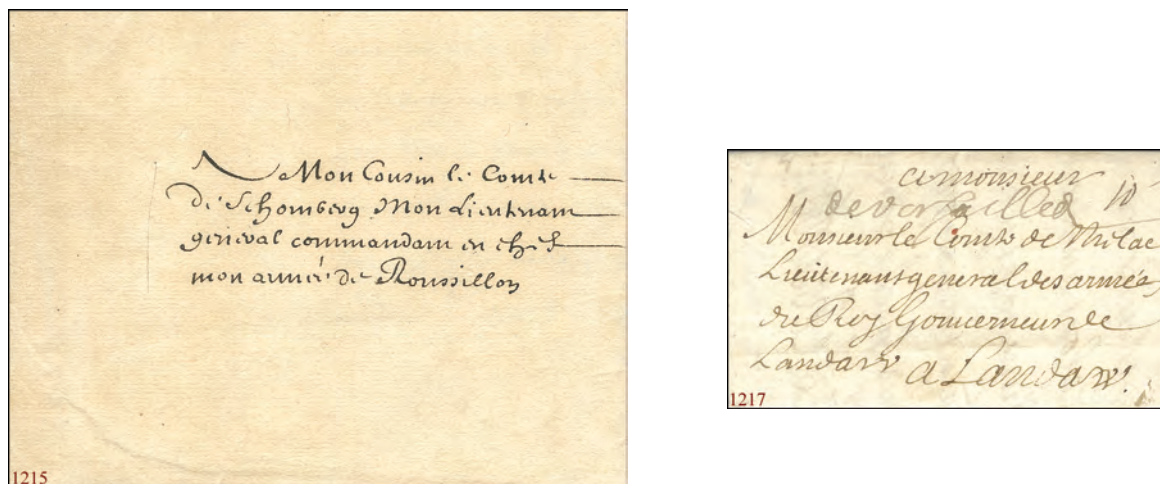 A Mon Cousin le Comte
de Schomberg Mon Lieutenant
general commandant en chef
mon armée de Roussillon
1215
a monsieur
de versailles 10
Monsieur le Comte de Melac
Lieutenant general des armées
du Roy Gouverneur de
Landaw a Landaw.
1217